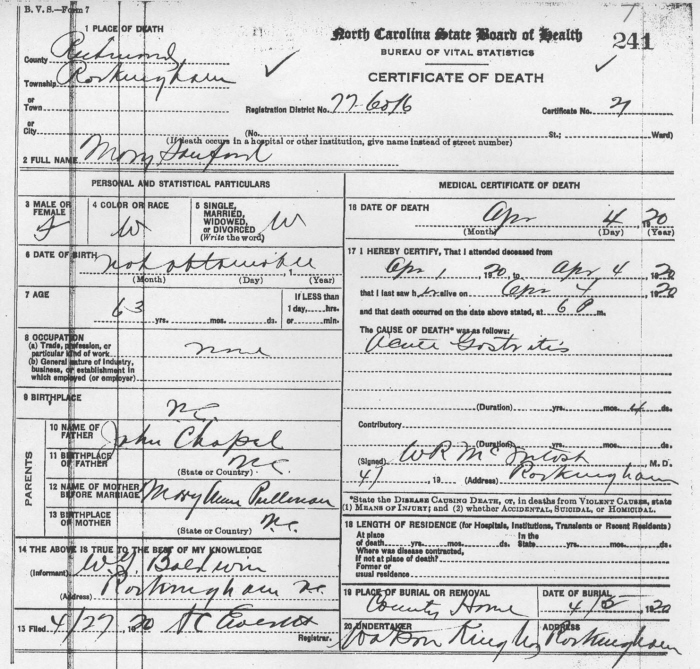 B. V. S.—Form 7
1 PLACE OF DEATH
North Carolina State Board of Health
BUREAU OF VITAL STATISTICS
241
County Richmond
CERTIFICATE OF DEATH
Township Rockingham
or
Town
Registration District No. 77-6016
Certificate No. 21
or
City (No. St.; Ward)
(If death occurs in a hospital or other institution, give name instead of street number)
2 FULL NAME Mary Sanford
PERSONAL AND STATISTICAL PARTICULARS
3 MALE OR FEMALE
F
4 COLOR OR RACE
W
5 SINGLE, MARRIED, WIDOWED, or DIVORCED (Write the word)
W
6 DATE OF BIRTH not obtainable 1
(Month) (Day) (Year)
7 AGE
63 yrs. mos. ds.
If LESS than 1 day, hrs. or min.
8 OCCUPATION
(a) Trade, profession, or particular kind of work
(b) General nature of industry, business, or establishment in which employed (or employer)
none
9 BIRTHPLACE
NC
PARENTS
10 NAME OF FATHER John Chapel
11 BIRTHPLACE OF FATHER NC
(State or Country)
12 NAME OF MOTHER BEFORE MARRIAGE Mary Ann
13 BIRTHPLACE OF MOTHER
(State or Country) N.C.
14 THE ABOVE IS TRUE TO THE BEST OF MY KNOWLEDGE
(Informant) Baldwin
(Address) Rockingham NC
15 Filed 4/27, 1920
Registrar.
MEDICAL CERTIFICATE OF DEATH
16 DATE OF DEATH Apr 4 1920
(Month) (Day) (Year)
17 I HEREBY CERTIFY, That I attended deceased from
Apr 1 1920, to Apr 4 1920
that I last saw her alive on Apr 4 1920
and that death occurred on the date above stated, at 6 P m.
The CAUSE OF DEATH* was as follows:
Acute Gastritis
(Duration) yrs. mos. 4 ds.
Contributory
(Duration) yrs. mos. ds.
(Signed) WR McIntosh, M. D.
4/7, 19 (Address) Rockingham
*State the DISEASE CAUSING DEATH, or, in deaths from VIOLENT CAUSES, state
(1) MEANS OF INJURY; and (2) whether ACCIDENTAL, SUICIDAL, or HOMICIDAL.
18 LENGTH OF RESIDENCE (for Hospitals, Institutions, Transients or Recent Residents)
At place of death yrs. mos. ds. In the State yrs. mos. ds.
Where was disease contracted, If not at place of death?
Former or usual residence
19 PLACE OF BURIAL OR REMOVAL
County Home
DATE OF BURIAL
4/5, 1920
20 UNDERTAKER
Watson King
ADDRESS
Rockingham